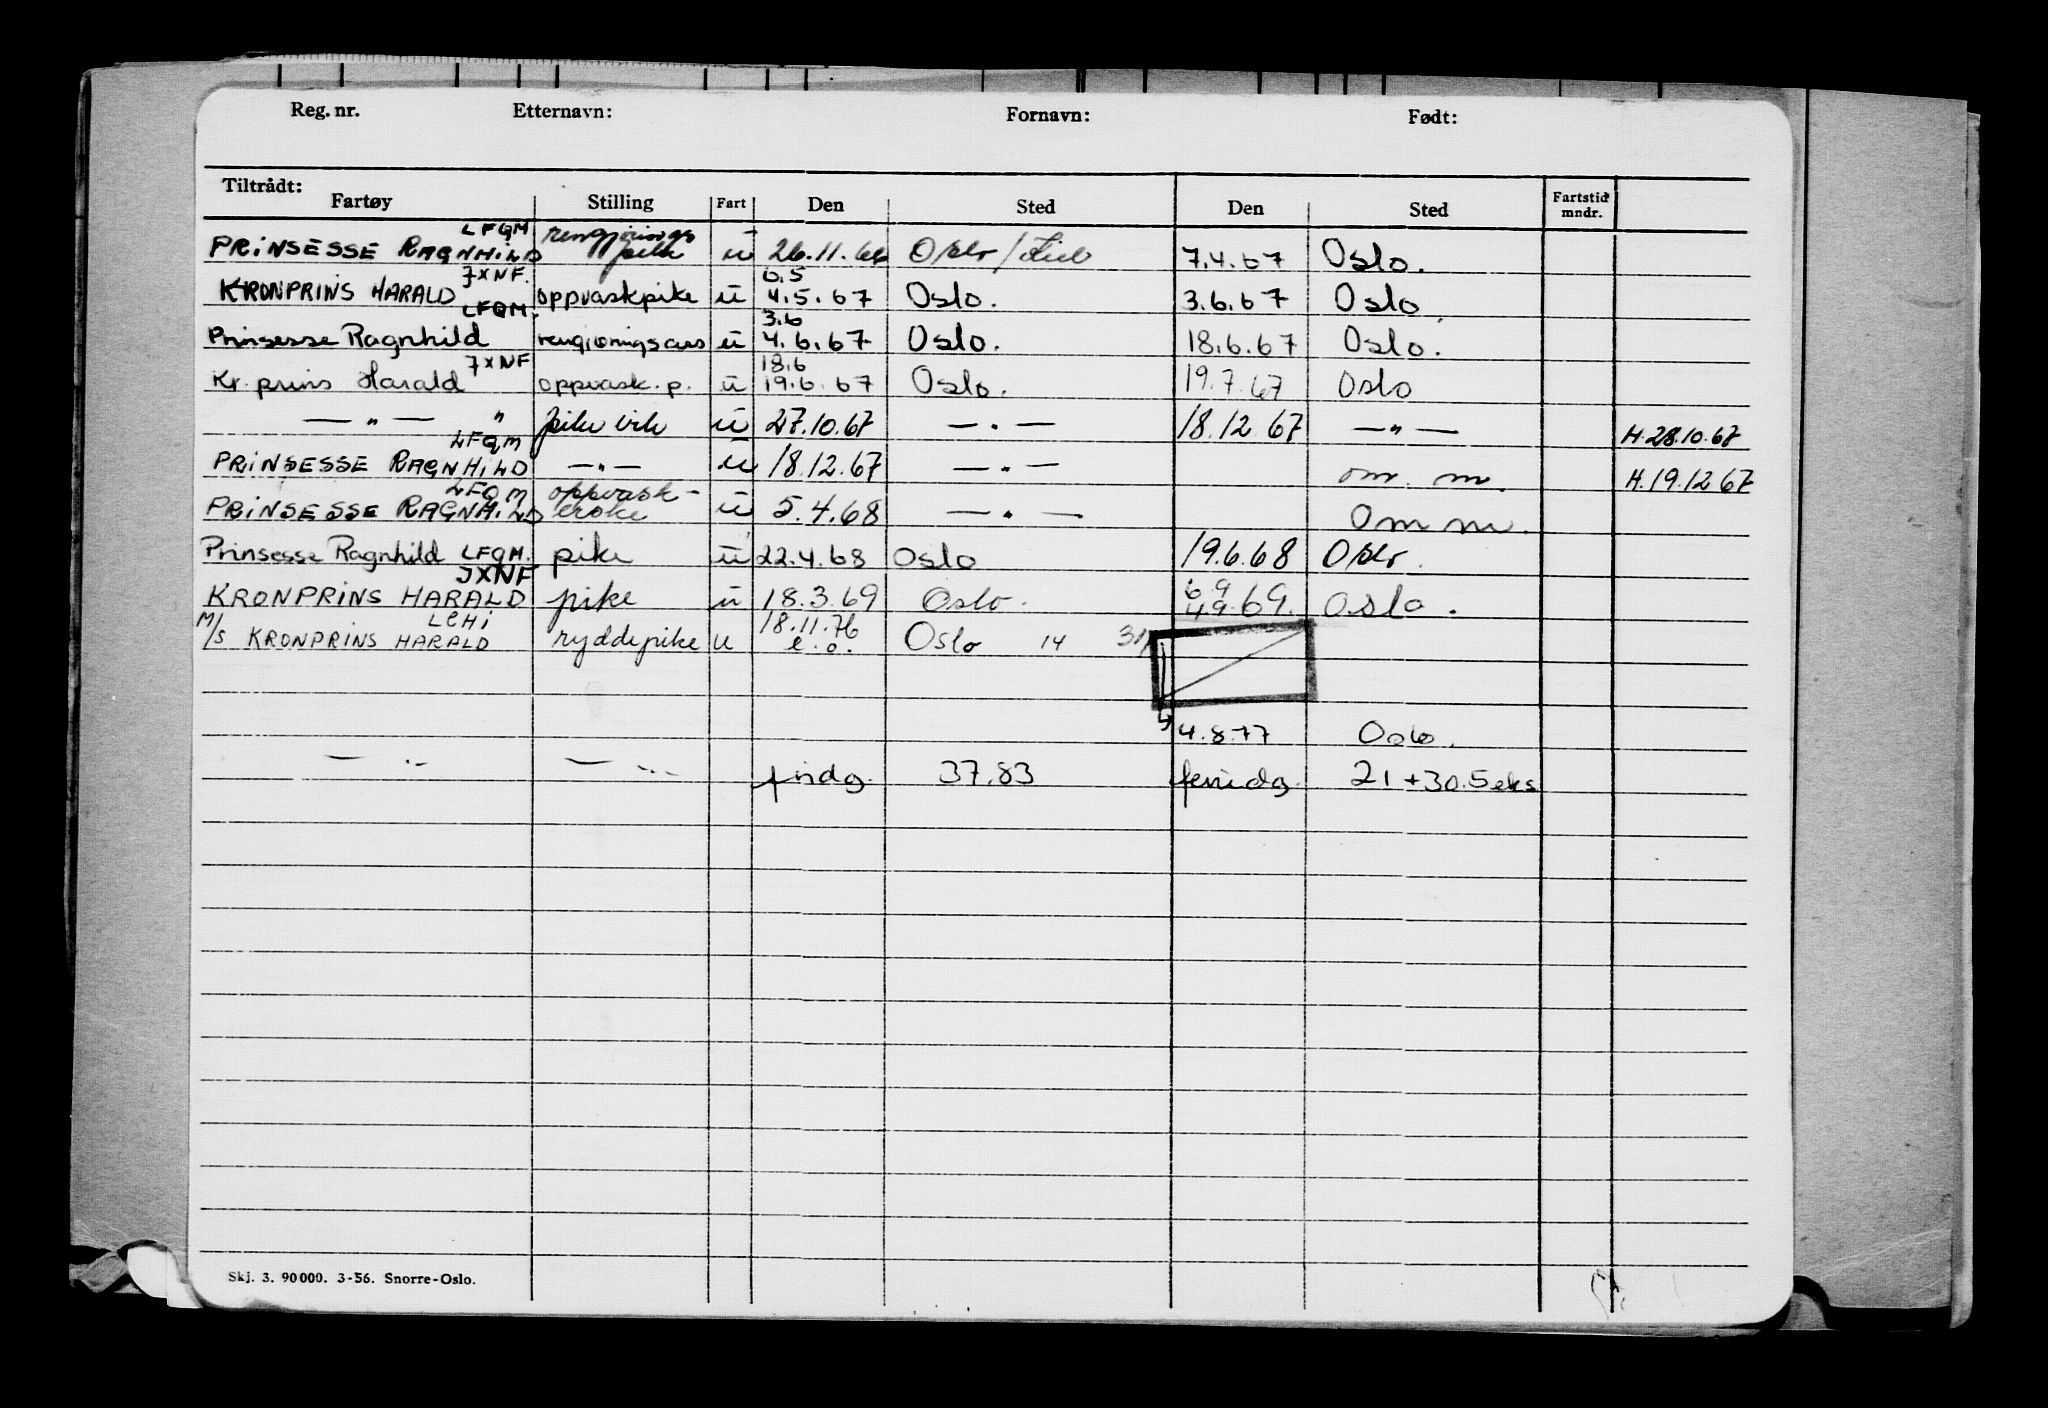 Reg. nr. Etternavn: Fornavn: Født:
Tiltrådt:
Fartøy Stilling Fart Den Sted Den Sted Fartstid mndr.
LFQM rengjørings
PRINSESSE RAGNHILD pike u 26.11.66 Oslo/Kiel 7.4.67 Oslo.
JXNF. 6.5
KRONPRINS HARALD oppvaskpike u 4.5.67 Oslo. 3.6.67 Oslo
LFQM. 3.6
Prinsesse Ragnhild u 4.6.67 Oslo. 18.6.67 Oslo.
JXNF 18.6
Kr. prins Harald oppvask.p. u 19.6.67 Oslo. 19.7.67 Oslo
— " — " pike vik u 27.10.67 — " — 18.12.67 — " — H.28.10.67
LFQM
PRINSESSE RAGNHILD — " — u 18.12.67 — " — om. m. H.19.12.67
LFQM oppvask-
PRINSESSE RAGNHILD erske u 5.4.68 — " — Om m.
Prinsesse Ragnhild LFQM. pike u 22.4.68 Oslo 19.6.68 Oslo.
JXNF 6 9
KRONPRINS HARALD pike u 18.3.69 Oslo. 4.9.69. Oslo.
LEHI 18.11.76
M/S KRONPRINS HARALD ryddepike u e.o. Oslo 14
4.8.77 Oslo.
— " — — " — 37.83 feridg. 21 + 30.5 eks
Skj. 3. 90000. 3-56. Snorre-Oslo.